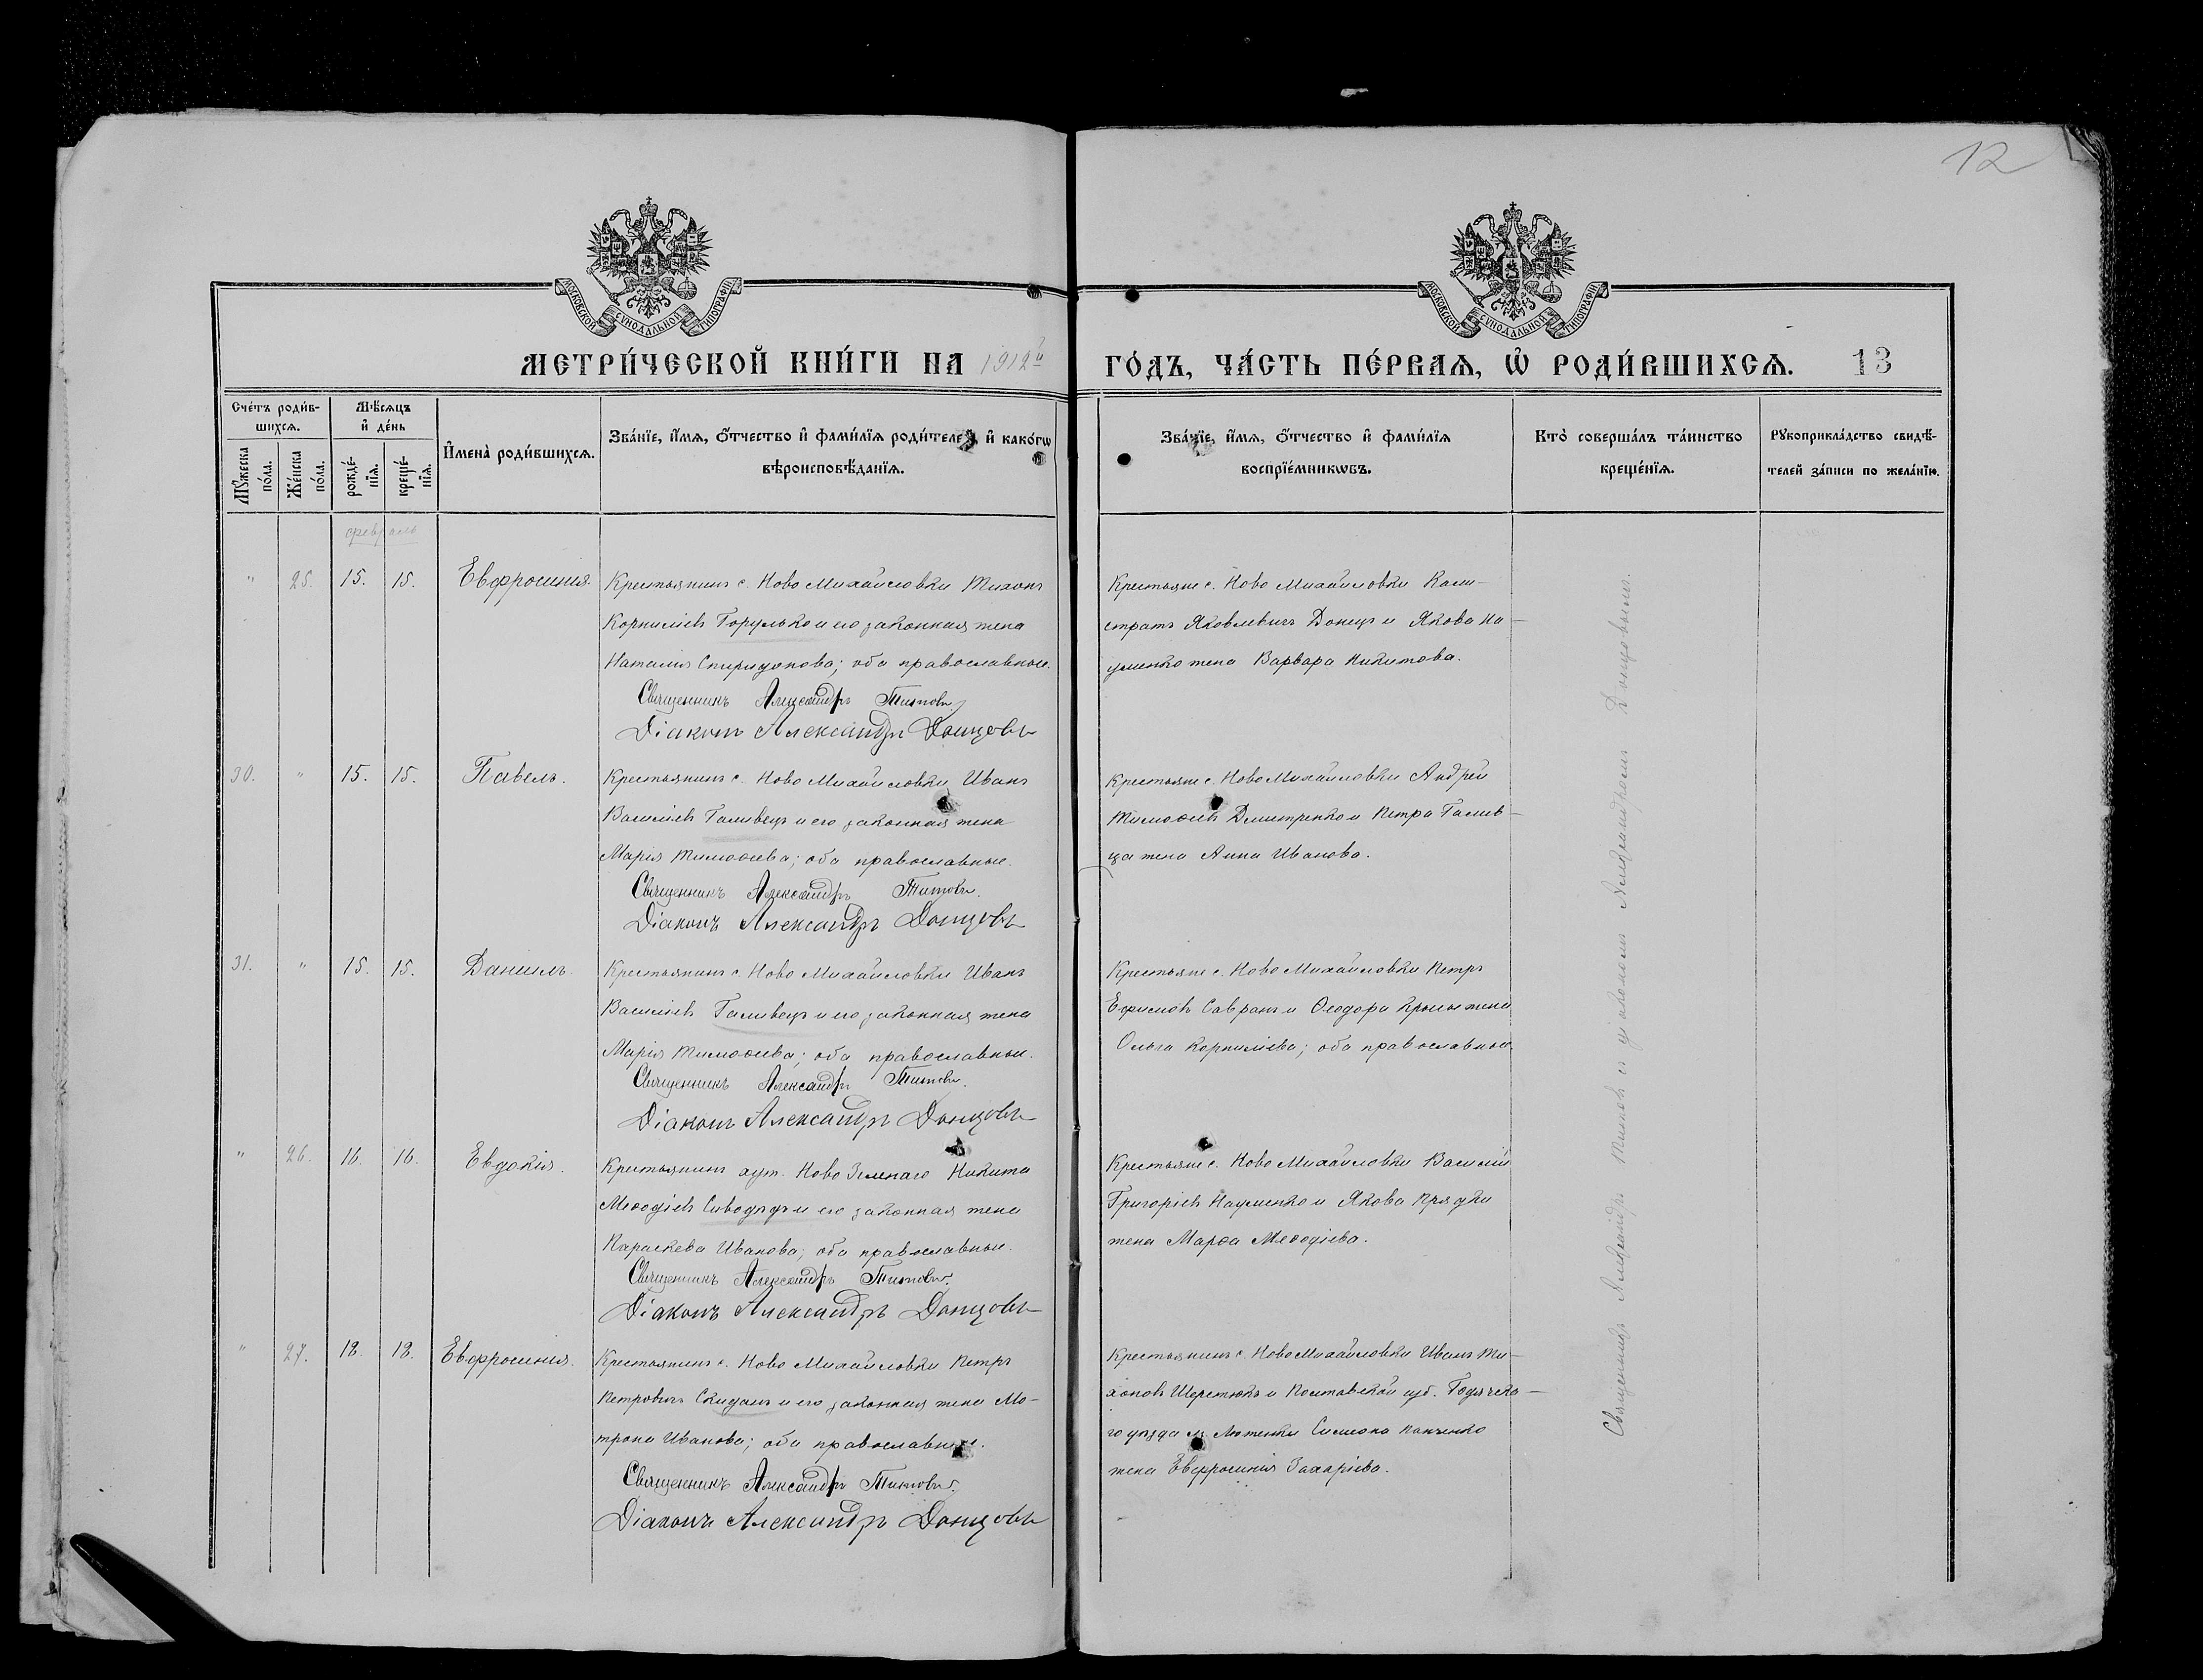 12
МОСКОВСКОЙ СѴНОДАЛЬНОЙ ТИПОГРАФІИ
МОСКОВСКОЙ СѴНОДАЛЬНОЙ ТИПОГРАФІИ
МЕТРИ́ЧЕСКОЙ КНИ́ГИ НА 1912й ГО́ДЪ, ЧА́СТЬ ПЕ́РВАѦ, Ѽ РОДИ́ВШИХСѦ. 13
Сче́тъ роди́в-
шихсѧ.
Мꙋ́жеска по́ла.
Же́нска по́ла.
Мѣ́сѧцъ
и҆ де́нь
рожде́-
нїѧ.
креще́-
нїѧ.
И҆мена̀ роди́вшихсѧ.
Зва́нїе, и҆́мѧ, ѻ҆́тчество и҆ фами́лїѧ роди́телей, и҆ како́гѡ
вѣроисповѣ́данїѧ.
Зва́нїе, и҆́мѧ, ѻ҆́тчество и҆ фами́лїѧ
воспрїе́мникѡвъ.
Кто̀ соверша́лъ та́инство
креще́нїѧ.
Рꙋкоприкла́дство свидѣ́-
телей за́писи по жела́нїю.
февраль
" 25. 15. 15. Евфросинія.
Крестьянинъ с. Ново Михайловки Тихонъ
Корниліевъ Горулько и его законная жена
Наталія Спиридонова; оба православные.
Священникъ Александръ Титовъ
Діаконъ Александръ Донцовъ
Крестьяне с. Ново Михайловки Кали-
стратъ Яковлевичъ Донецъ и Якова На-
уменко жена Варвара Никитова.
30. " 15. 15. Павелъ.
Крестьянинъ с. Ново Михайловки Иванъ
Василіевъ Галивецъ и его законная жена
Марія Тимоѳеева; оба православные.
Священникъ Александръ Титовъ.
Діаконъ Александръ Донцовъ
Крестьяне с. Ново Михайловки Андрей
Тимоѳеевъ Дмитренко и Петра Галив-
ца жена Анна Иванова.
31. " 15. 15. Даніилъ.
Крестьянинъ с. Ново Михайловки Иванъ
Василіевъ Галивецъ и его законная жена
Марія Тимоѳеева; оба православные.
Священникъ Александръ Титовъ.
Діаконъ Александръ Донцовъ
Крестьяне с. Ново Михайловки Петръ
Ефимовъ Савранъ и Ѳеодора жена
Ольга Корниліева; оба православные.
" 26. 16. 16. Евдокія.
Крестьянинъ хут. Ново Зеленаго Никита
Меѳодіевъ Сиводѣдъ и его законная жена
Параскева Иванова; оба православные.
Священникъ Александръ Титовъ.
Діаконъ Александръ Донцовъ
Крестьяне с. Ново Михайловки Василій
Григоріевъ Науменко и Якова Прядки
жена Марѳа Меѳодіева.
" 27. 18. 18. Евфросинія.
Крестьянинъ с. Ново Михайловки Петръ
Петровичъ Скиданъ и его законная жена Мо-
трона Иванова; оба православные.
Священникъ Александръ Титовъ.
Діаконъ Александръ Донцовъ
Крестьянинъ с. Ново Михайловки Иванъ Ти-
хоновъ Шерстюкъ и Полтавской губ. Гадячска-
го уѣзда м. Лютенки Симеона Панченко
жена Евфросинія Захаріева.
Священникъ Александръ Титовъ съ діакономъ Александромъ Донцовымъ.